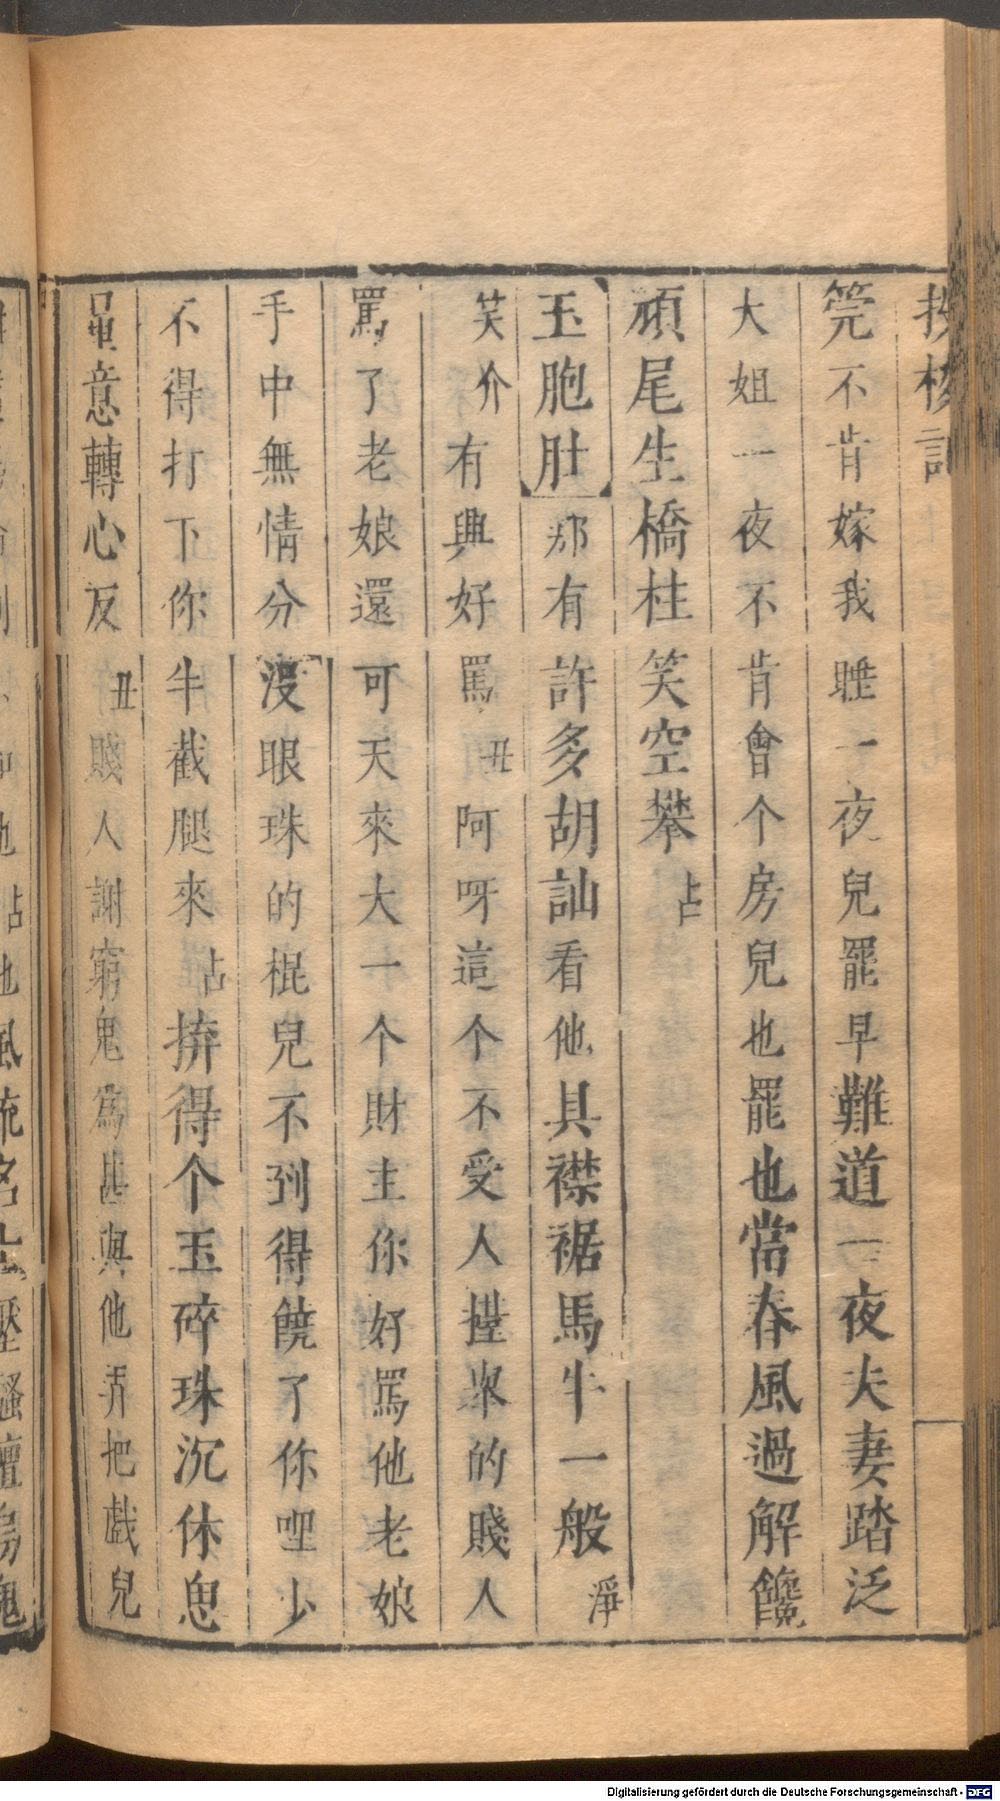 投梭記
筦不肯嫁我睡一夜兒罷早難道一夜夫妻踏泛
大姐一夜不肯會个房兒也罷也當春風過解饞
頑尾生橋柱笑空攀占
玉胞肚那有許多胡訕看他具襟裾馬牛一般淨
笑介有興好罵丑阿呀這个不受人擡眾的賤人
罵了老娘還可天來大一个財主你好罵他老娘
手中無情分沒眼珠的棍兒不到得饒了你哩少
不得打下你牛截腿來占拚得个玉碎珠沉休思
量意轉心反丑賤人謝窮鬼為甚與他弄把戲兒
Digitalisierung gefördert durch die Deutsche Forschungsgemeinschaft - DFG